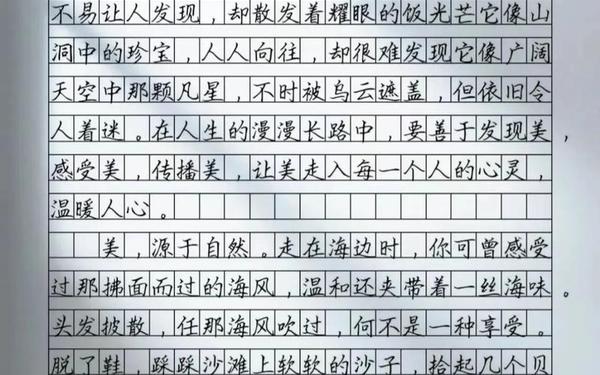 不易让人发现，却散发着耀眼的饭光芒它像山
洞中的珍宝，人人向往，却很难发现它像广阔
天空中那颗凡星，不时被乌云遮盖，但依旧令
人着迷。在人生的漫漫长路中，要善于发现美，
感受美，传播美，让美走入每一个人的心灵，
温暖人心。
美，源于自然。走在海边时，你可曾感受
过那拂面而过的海风，温和还夹带着一丝海味。
头发披散，任那海风吹过，何不是一种享受。
脱了鞋，踩踩沙滩上软软的沙子，拾起几个贝